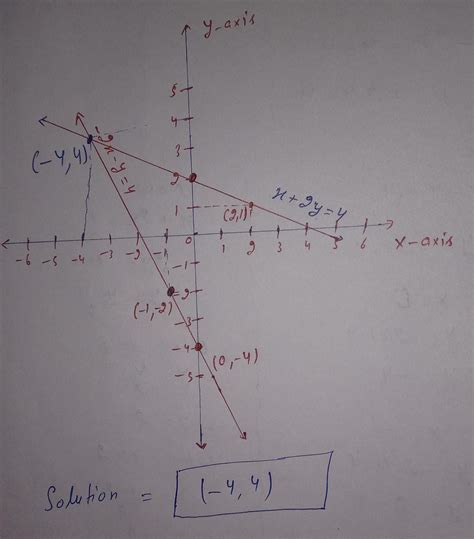 y-axis
5
4
3
2
1
0
-1
-2
-3
-4
-5
-6 -5 -4 -3 -2 -1
1 2 3 4 5 6
x-axis
(-4,4)
-2x-y=4
x+2y=4
(2,1)
(-1,-2)
(0,-4)
Solution = (-4,4)